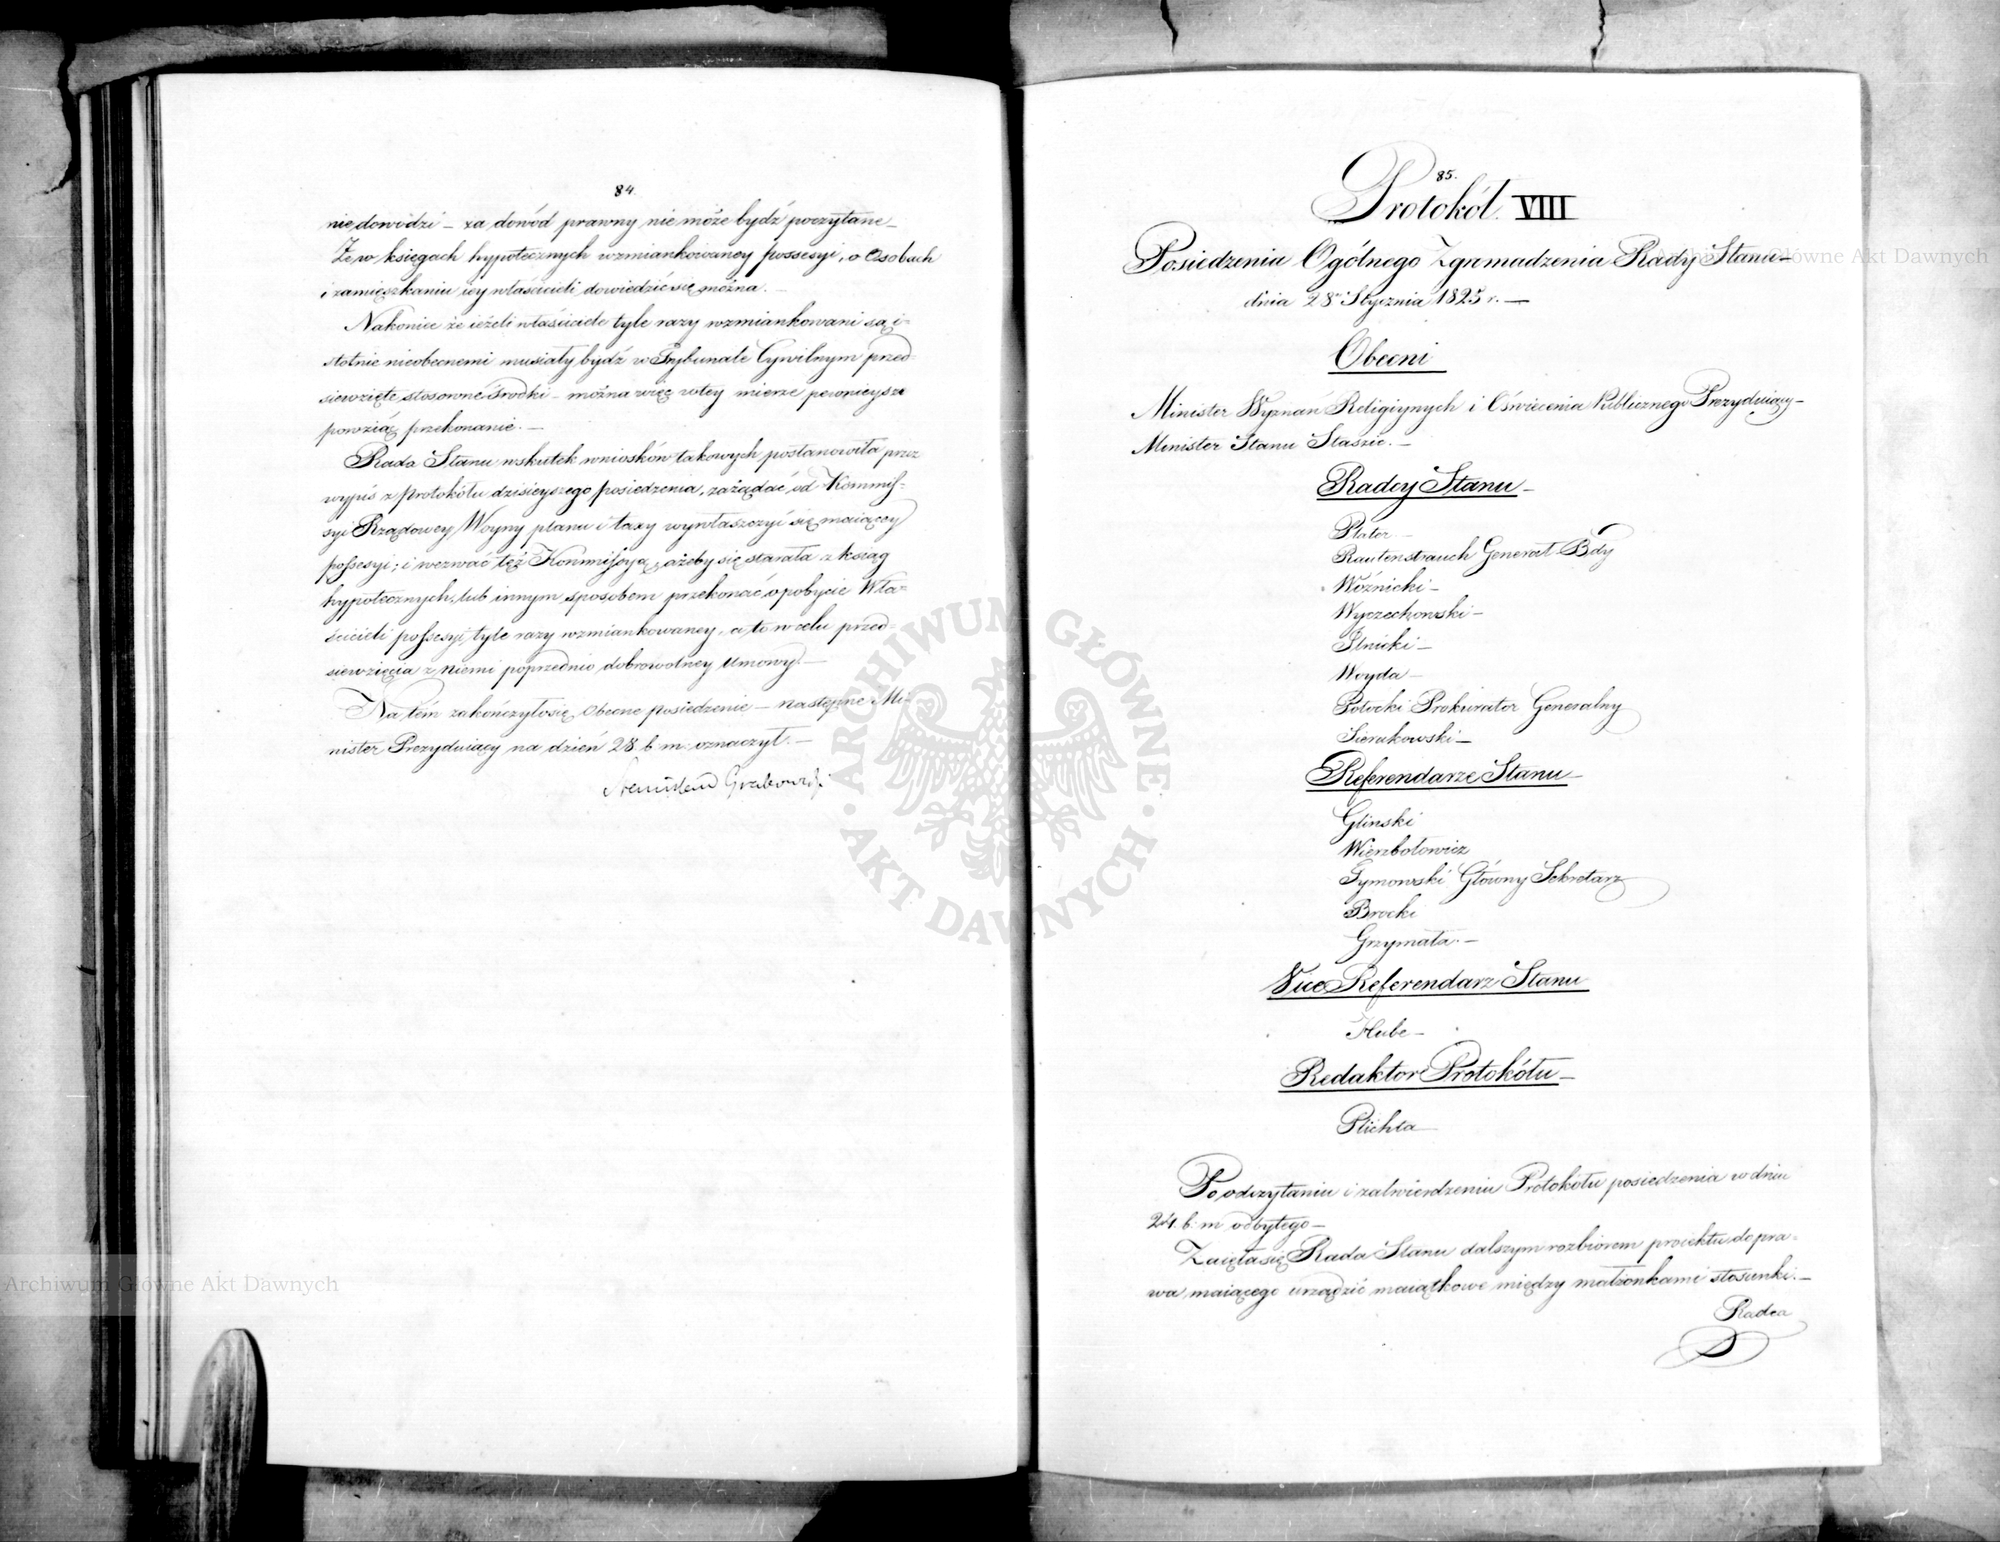 84.
nie dowodzi – za dowód prawny nie może bydź poczytane –
Że w księgach hypotecznych wzmiankowaney possesyi, o Osobach
i zamięszkaniu iey właścicieli dowiedzić się można. –
Nakoniec że ieżeli właściciele tyle razy wzmiankowani są i-
stotnie nieobecnemi musiały bydź w Trybunale Cywilnym przed-
siewzięte stosowne środki – można więc w tey mierze pewnieysze
powziąć przekonanie. –
Rada Stanu wskutek wniosków takowych postanowiła przez
wypis z protokółu dzisieyszego posiedzenia, zażądać od Kommis-
syi Rządowey Woyny planu i taxy wywłaszczyć się maiącey
possesyi; i wezwać też Kommissyą, ażeby się starała z ksiąg
hypotecznych, lub innym sposobem przekonać o pobycie Wła-
ścicieli possesyi tyle razy wzmiankowaney, a to w celu przed-
siewzięcia z niemi poprzednio dobrowolney umowy. –
Na tém zakończyło się obecne posiedzenie – następne Mi-
nister Prezyduiący na dzień 28 b. m. oznaczył. –
Stanisław Grabowski
85.
Protokół VIII
Posiedzenia Ogólnego Zgromadzenia Rady Stanu –
dnia 28go Stycznia 1825 r. –
Obecni
Minister Wyznań Religiynych i Oświecenia Publicznego Prezyduiący –
Minister Stanu Staszic. –
Radcy Stanu –
Plater –
Rautenstrauch Generał Bdy
Woźnicki –
Wyczechowski –
Ilnicki –
Woyda –
Potocki Prokurator Generalny
Sierakowski –
Referendarze Stanu –
Gliński
Wierzbołowicz
Tymowski Główny Sekretarz
Brocki
Grzymała. –
Vice Referendarz Stanu
Hube –
Redaktor Protokółu –
Plichta
Po odczytaniu i zatwierdzeniu Protokółu posiedzenia w dniu
24. b. m odbytego –
Zaięła się Rada Stanu dalszym rozbiorem proiektu do pra-
wa maiącego urządzić maiątkowe między małżonkami stosunki. –
Radca
Archiwum Główne Akt Dawnych
ARCHIWUM GŁÓWNE · AKT DAWNYCH ·
Archiwum Główne Akt Dawnych